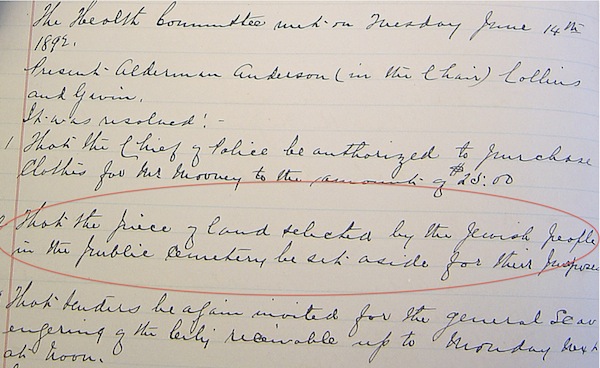 The Health Committee met on Tuesday June 14th
1892.
Present Alderman Anderson (in the Chair) Collins
and Gavin.
It was resolved: -
1 That the Chief of Police be authorized to purchase
Clothes for Mr Mooney to the amount of $25.00
That the piece of land selected by the Jewish people
in the public Cemetery be set aside for their purpose
That tenders be again invited for the general Scav
engering of the City receivable up to Monday next
at Noon.